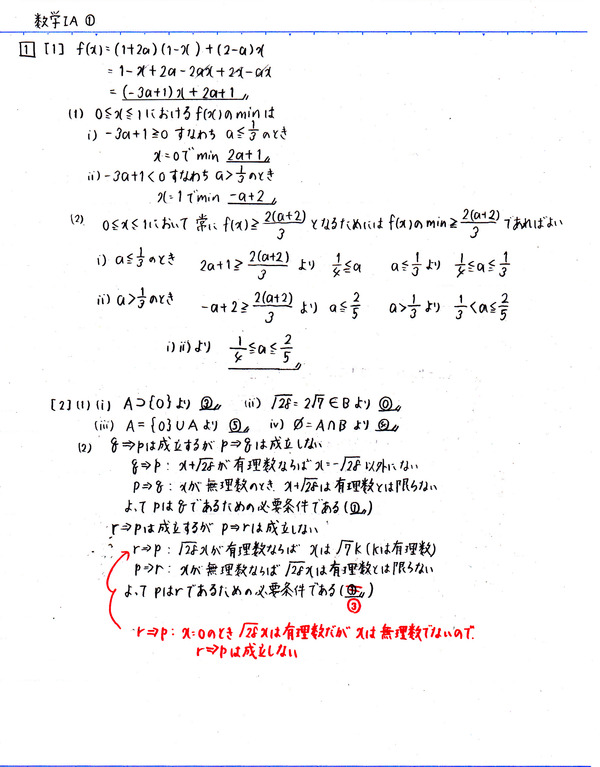 数学IA ①
1 [1] f(x)=(1+2a)(1-x)+(2-a)x
=1-x+2a-2ax+2x-ax
=(-3a+1)x+2a+1
(1) 0≦x≦1におけるf(x)のminは
i) -3a+1≧0 すなわち a≦1/3のとき
x=0でmin 2a+1
ii) -3a+1<0すなわち a>1/3のとき
x=1でmin -a+2
(2) 0≦x≦1において 常に f(x)≧2(a+2)/3 となるためには f(x)のmin≧2(a+2)/3 であればよい
i) a≦1/3のとき 2a+1≧2(a+2)/3 より 1/4≦a a≦1/3より 1/4≦a≦1/3
ii) a>1/3のとき -a+2≧2(a+2)/3 より a≦2/5 a>1/3より 1/3<a≦2/5
i)ii)より 1/4≦a≦2/5
[2](1)(i) A⊃{0}より ③ (ii) √28=2√7∈Bより ⓪
(iii) A={0}∪Aより ⑤ iv) Ø=A∩Bより
(2) q⇒pは成立するが p⇒qは成立しない
q⇒p: x+√28が有理数ならばx=-√28以外にない
p⇒q: xが無理数のとき x+√28は有理数とは限らない
よって pはqであるための必要条件である(①)
r⇒pは成立するが p⇒rは成立しない
r⇒p: √28xが有理数ならば xは√7k(kは有理数)
p⇒r: xが無理数ならば√28xは有理数とは限らない
よって pはrであるための必要条件である
③
r⇒p: x=0のとき√28xは有理数だが xは無理数でないので
r⇒pは成立しない